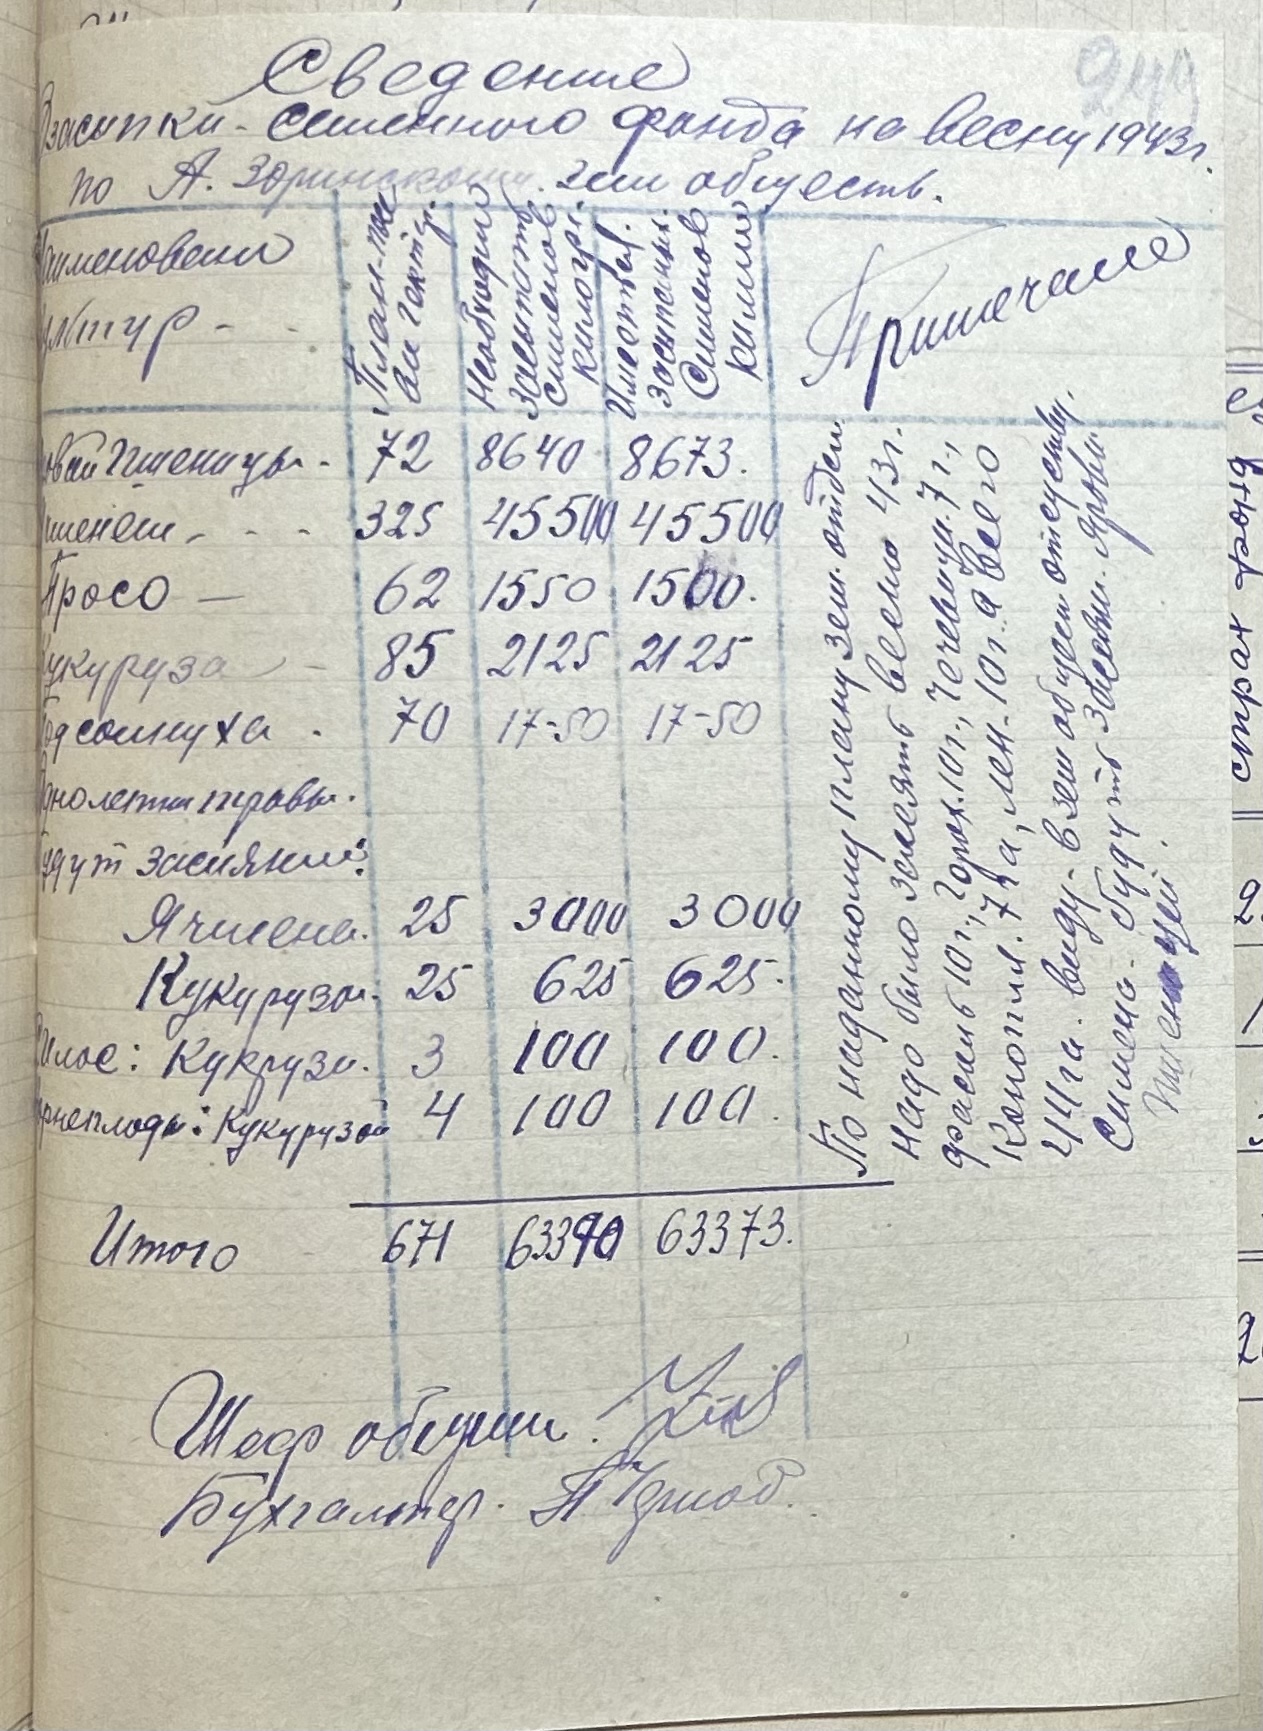 244
Сведение
засыпки - семенного фонда на весну 1943 г.
по А. Зоринском. зем обществ.
Наименовани
культур - -
План-
ви гектр.
Необходимо
засыпить
семенов
килогр.
Имеются.
засыпаных.
Семенов
килло
Примечание
овой Пшеницы.
72 8640 8673.
Ячменем - - -
325 45500 45500
Просо —
62 1550 1500.
Кукуруза -
85 2125 2125
Подсолнуха .
70 17-50 17-50
Однолетки травы.
будут засияний:
Ячмена. 25 3000 3000
Кукурузы. 25 625 625.
Силос: Кукрузы. 3 100 100.
Корнеплоды: Кукурузой 4 100 100.
Итого 671 63390 63373.
По наданному плану зем. отдел.
надо было засеять весно 43 г.
фасоль 10 г., горох. 10 г., чечевици. 7 г.,
Конопля. 7 га, лен. 10 г. а всего
44 га. ввиду - в зем общем отсуству.
Симена. будут засеян. яровой
пшеницей.
Шеф общин.
Бухгалтер.
страх фонд